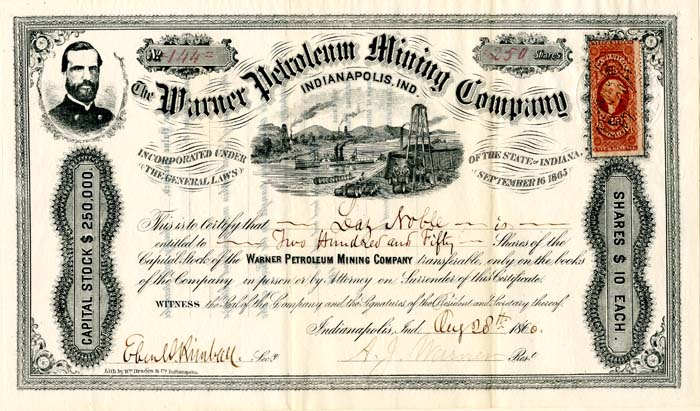 No 144 =
250 Shares
The Warner Petroleum Mining Company
INDIANAPOLIS, IND.
INCORPORATED UNDER THE GENERAL LAWS
OF THE STATE OF INDIANA, SEPTEMBER 16 1865
CAPITAL STOCK $ 250,000.
SHARES $ 10 EACH.
This is to Certify that Laz Noble is
entitled to Two Hundred and Fifty Shares of the
Capital Stock of the WARNER PETROLEUM MINING COMPANY transferable, only on the books
of the Company in person or by Attorney on Surrender of this Certificate.
WITNESS the Seal of the Company and the Signatures of the President and Secretary thereof.
Indianapolis, Ind. Aug 28th 186
Kimball Secy.
A. J. Warner Prest.
Lith. by Wm. Braden & Co. Indianapolis.